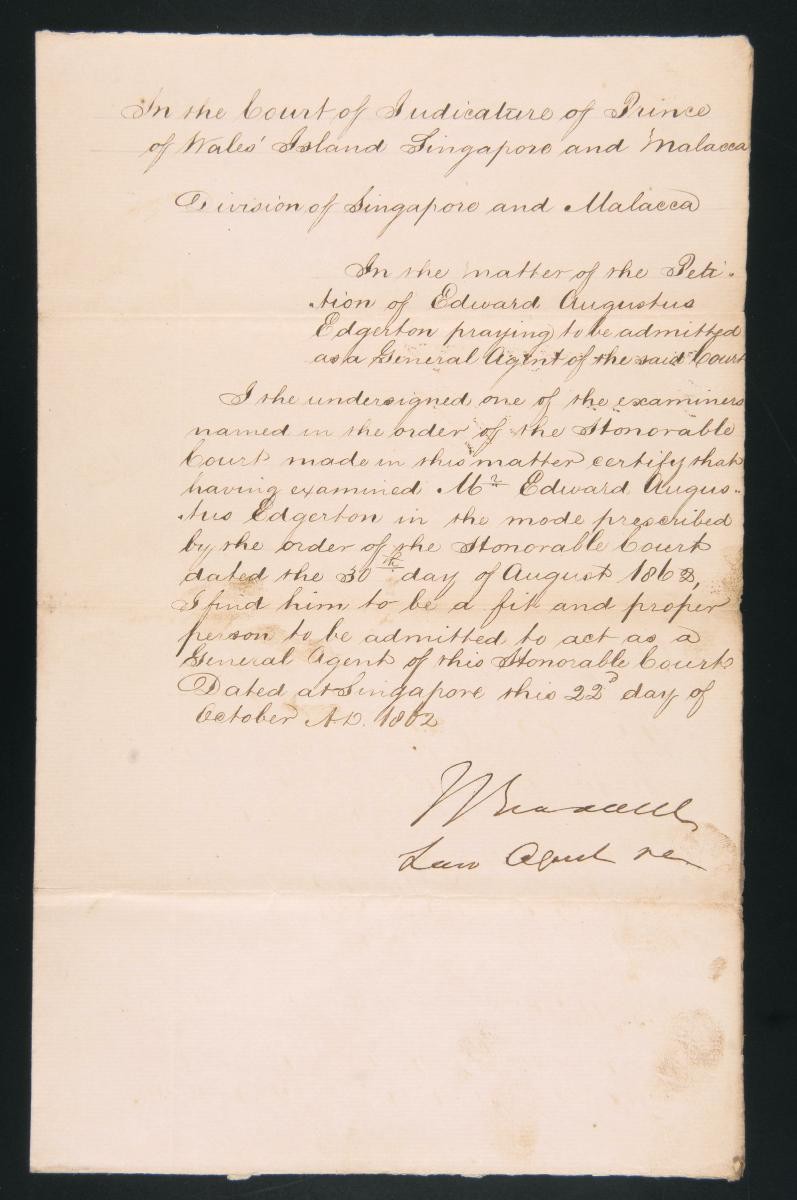 In the Court of Judicature of Prince
of Wales' Island Singapore and Malacca
Division of Singapore and Malacca
In the matter of the Peti-
tion of Edward Augustus
Edgerton praying to be admitted
as a General Agent of the said Court
I the undersigned one of the examiners
named in the order of the Honorable
Court made in this matter certify that
having examined Mr Edward Augus-
tus Edgerton in the mode prescribed
by the order of the Honorable Court
dated the 30th day of August 1862,
I find him to be a fit and proper
person to be admitted to act as a
General Agent of this Honorable Court
Dated at Singapore this 22d day of
October A.D. 1862
Law Agent